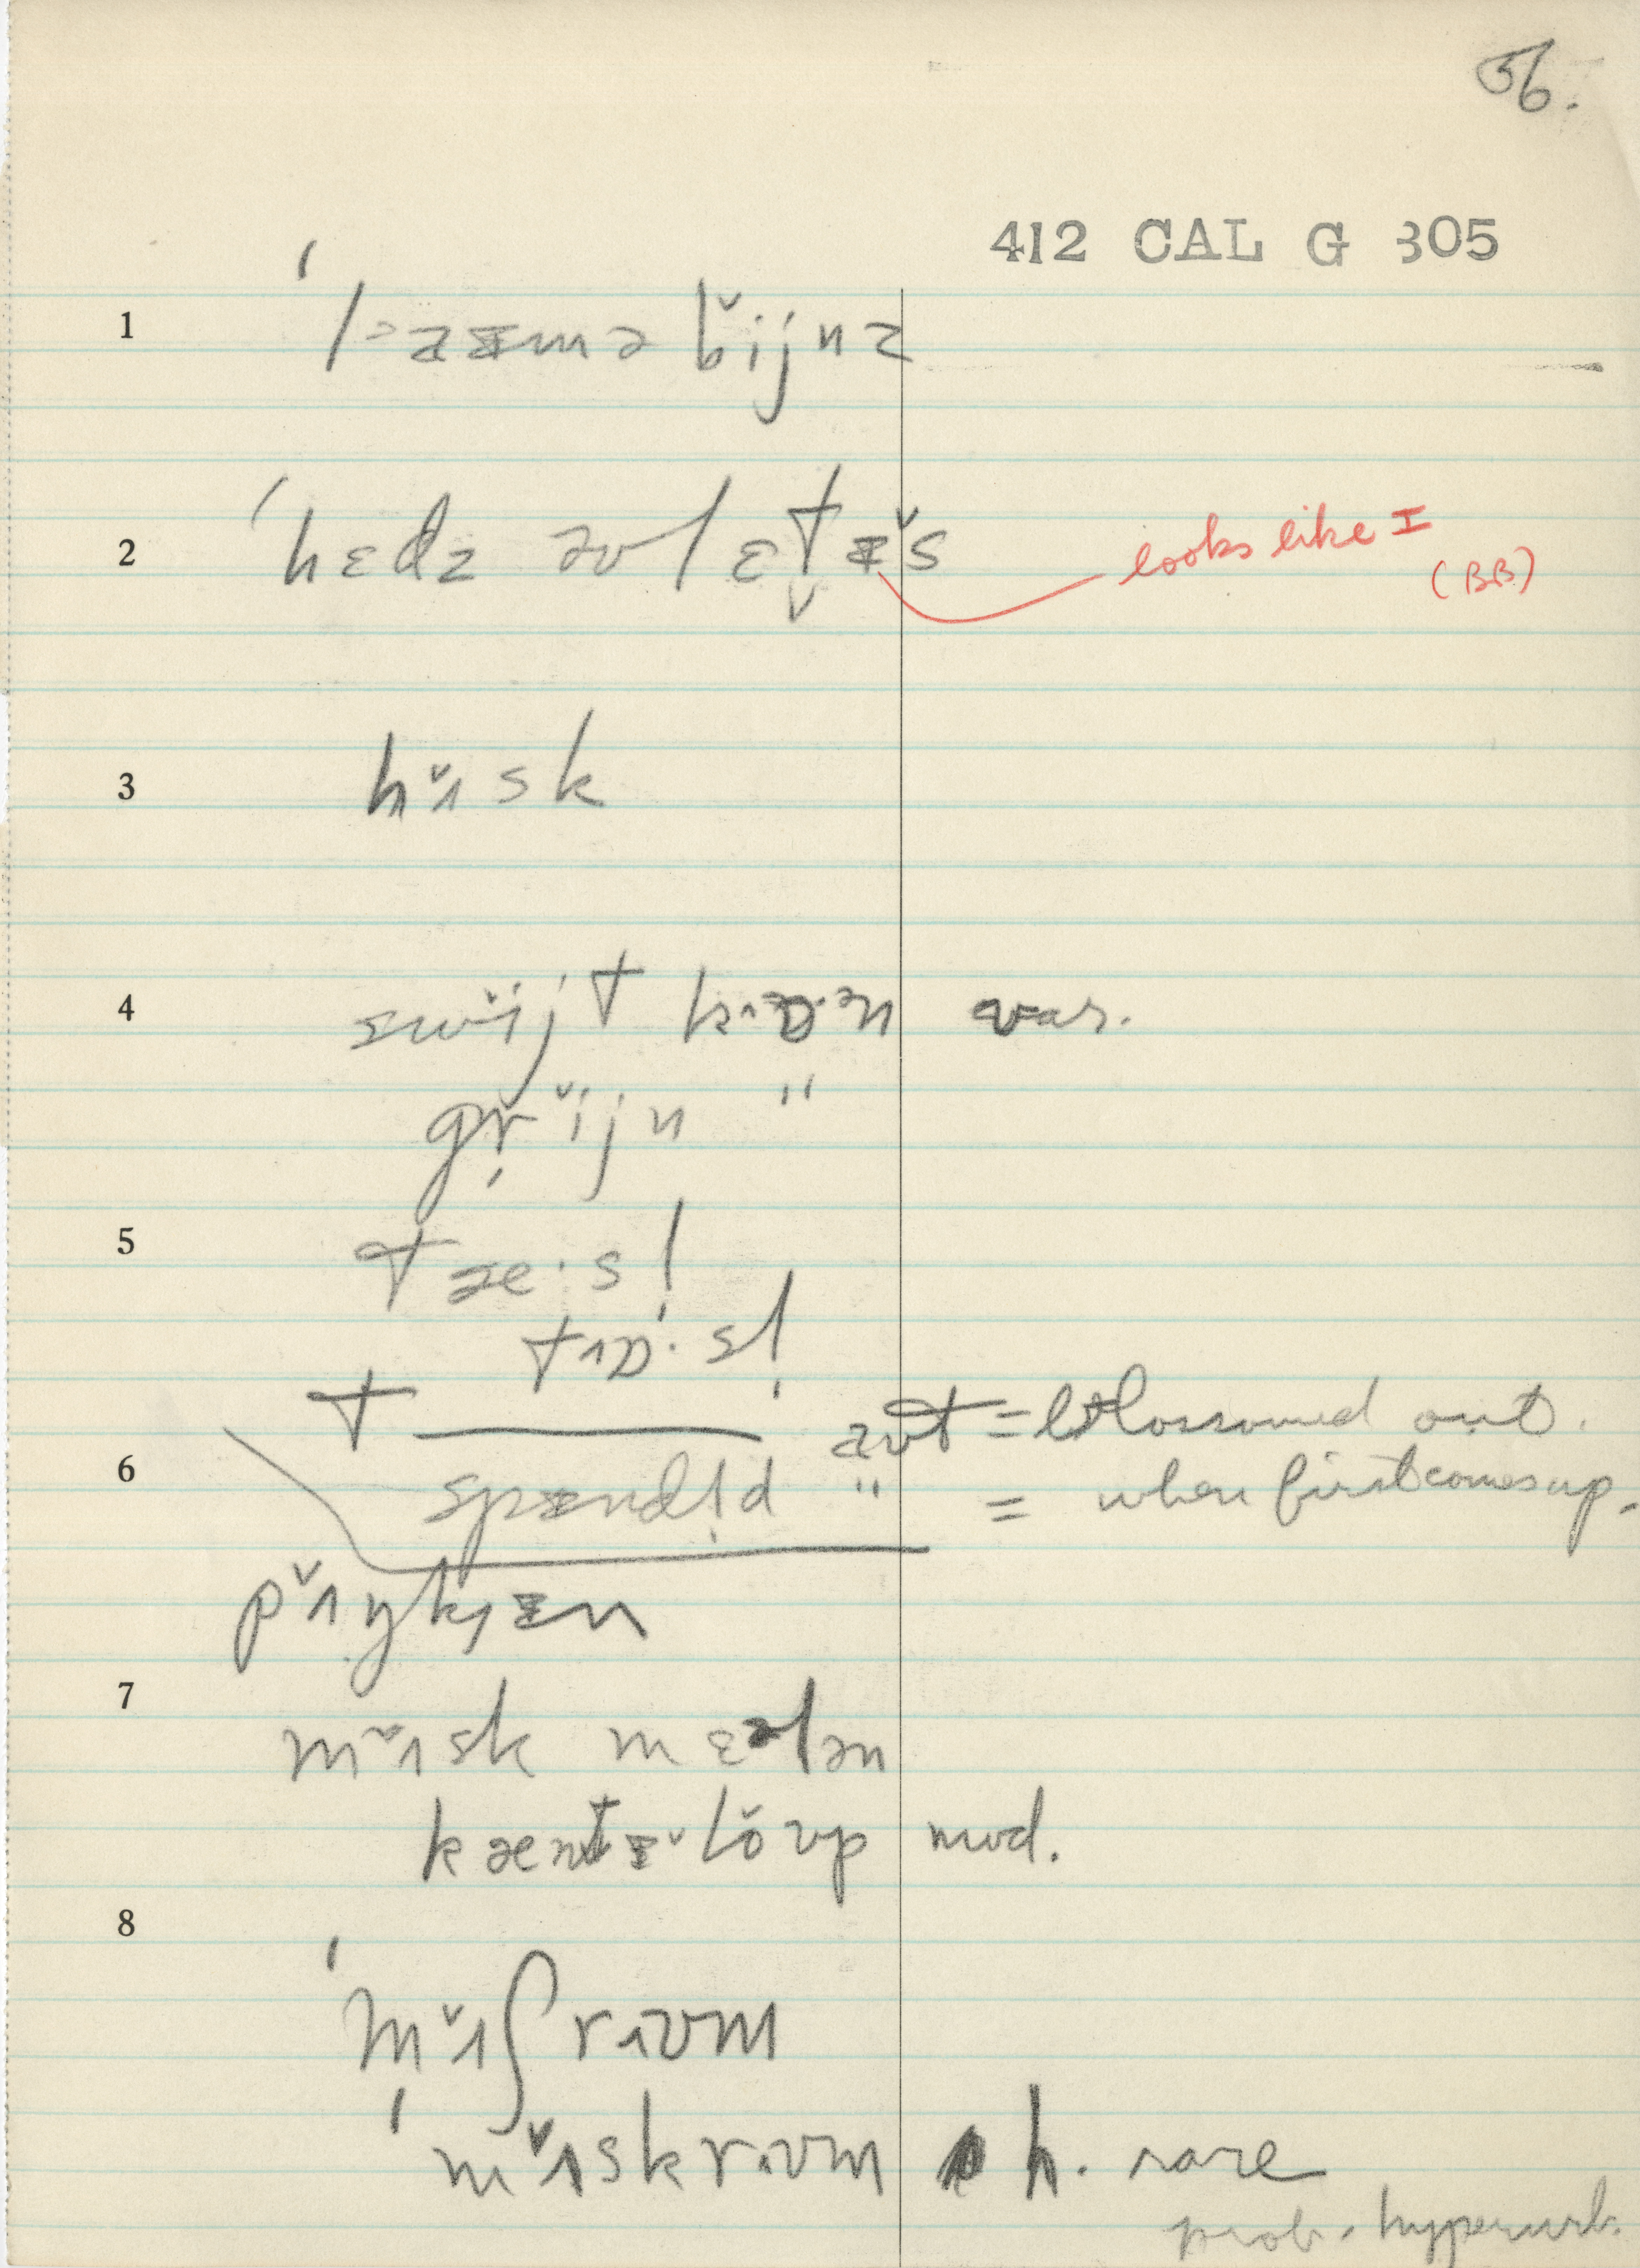 56.
412 CAL G 305
1 ˈlaᵻmə bĭjnz
2 ˈhɛdz əv lɛt̬ᵻ̆s looks like ᵻ
(BB)
3 hʌ̆sk
4 swĭjt kɒ·ən var.
grĭjn "
5 tæ·sl̩
tɒ·sl̩
T ——— aʊt = blossomed out.
6 spᵻndl̩d " = when first comes up.
pʌ̆ŋkᵻn
7 mʌ̆sk mɛlən
kæntᵻ̆lŏʊp mod.
8
ˈmʌ̆ʃrʊm
ˈmʌ̆skrʊm h. rare
prob. hyperurb.